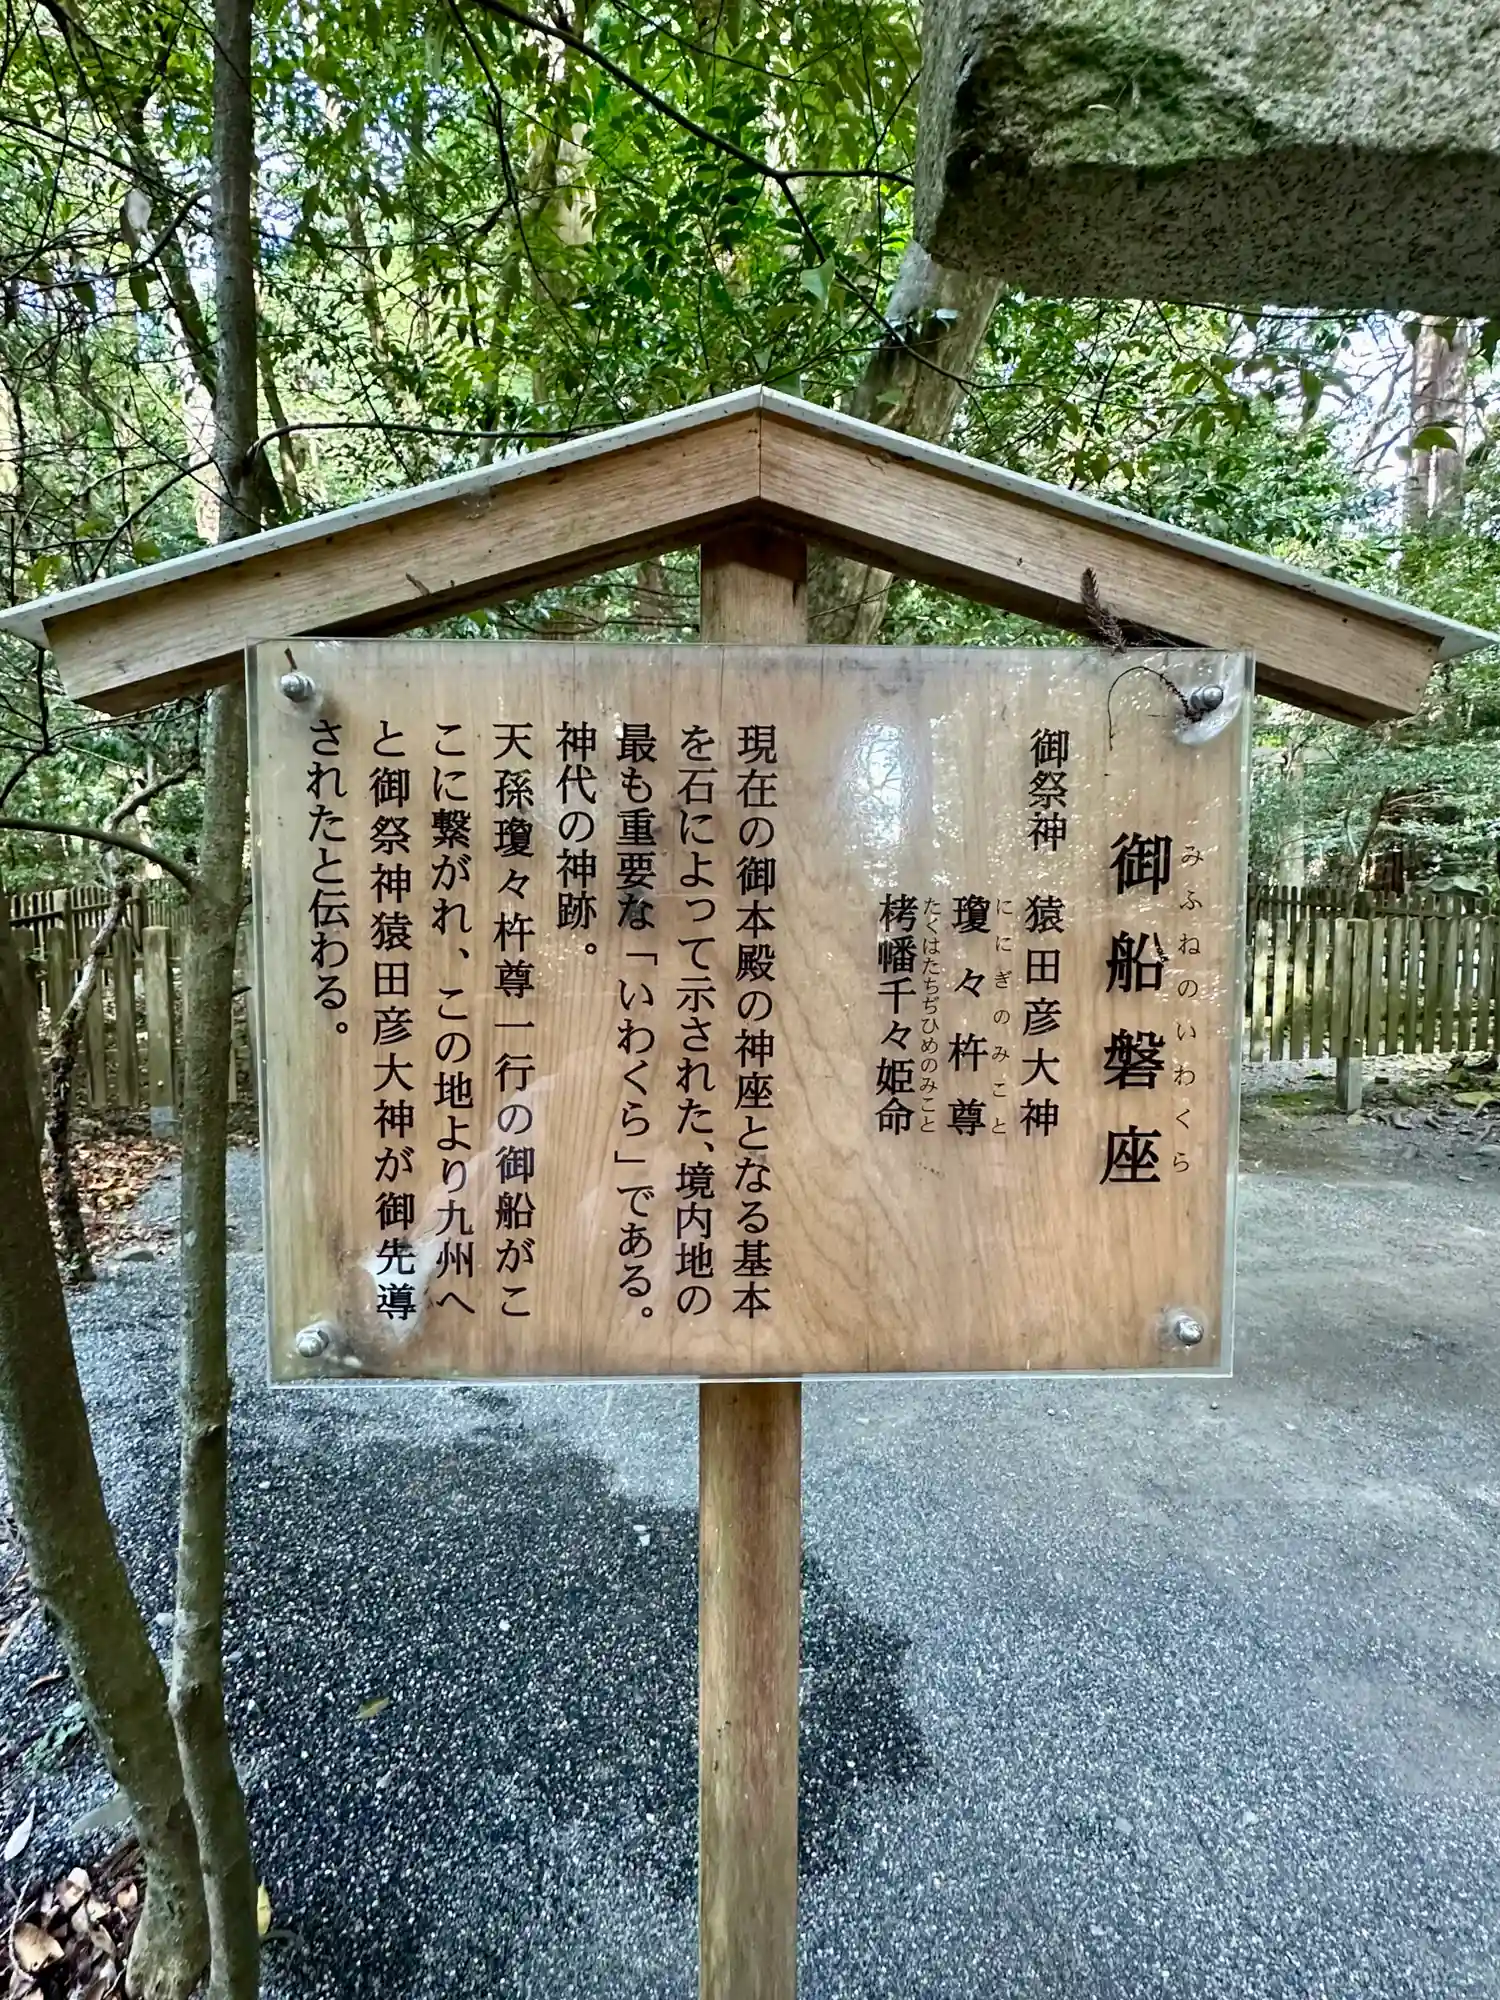 御船磐座
みふねのいわくら
御祭神 猿田彦大神
瓊々杵尊
ににぎのみこと
栲幡千々姫命
たくはたちぢひめのみこと
現在の御本殿の神座となる基本
を石によって示された、境内地の
最も重要な「いわくら」である。
神代の神跡。
天孫瓊々杵尊一行の御船がこ
こに繋がれ、この地より九州へ
と御祭神猿田彦大神が御先導
されたと伝わる。